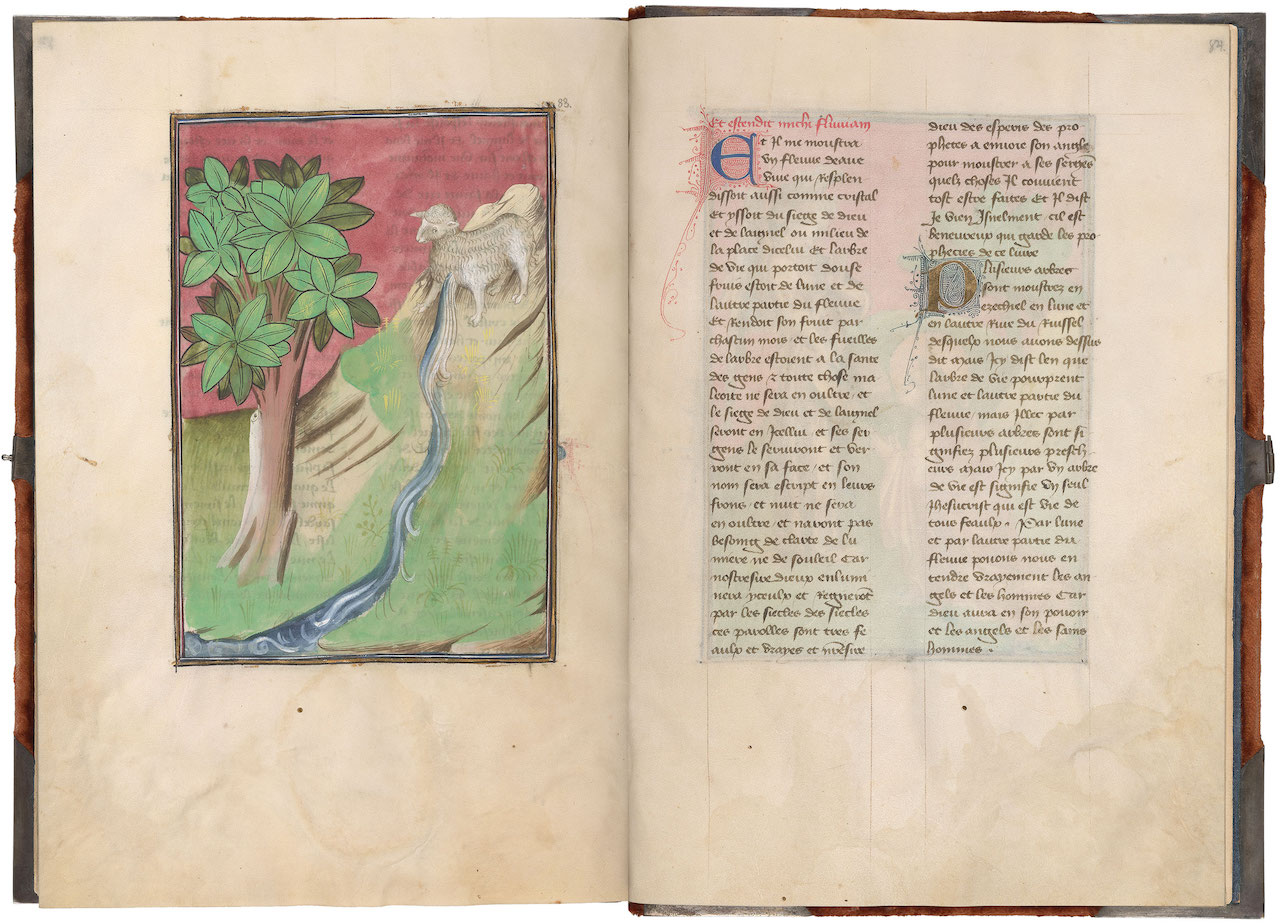 83.
84.
Et estendit michi fluvium
Et Il me moustra
vn fleuve deaue
viue qui resplen
dissoit aussi comme cristal
et yssoit du siege de dieu
et de laignel ou milieu de
la place dicelui Et larbre
de vie qui portoit douse
fruis estoit de lune et de
lautre partie du fleuue
Et rendoit son fruit par
chascun mois et les fueilles
de larbre estoient a la sante
des gens z toute chose ma
leoite ne sera en oultre et
le siege de dieu et de laignel
seront en Icellui et ses ser
gens le seruiront et ver
ront en sa face et son
nom sera escript en leurs
frons et nuit ne sera
en oultre et naront pas
besoing de clarte de lu
miere ne de souleil Car
nostresire dieux enlumi
nera yceulx et regneront
par les siecles des siecles
ces parolles sont tres fe
aulx et vrayes et nostresire
dieu des esperis des pro
phetes a enuoie son angle
pour moustrer a ses serges
quelz choses Il conuient
tost estre faites Et Il dist
Je vien Isnelment cil est
beneureux qui garde les pro
phecies de ce liure
Plusieurs arbres
sont moustrez en
ezechiel en lune et
en lautre riue du ruissel
desquelx nous auons dessus
dit mais Icy dist len que
larbre de vie pourprent
lune et lautre partie du
fleuue mais Illec par
plusieurs arbres sont si
gnifiez plusieurs presch
eurs mais Icy par vn arbre
de vie est signifie vn seul
Jhesucrist qui est vie de
tous feaulx . Par lune
et par lautre partie du
fleuue pouons nous en
tendre vrayement les an
gels et les hommes Car
dieu aura en son pouoir
et les angels et les sains
hommes .